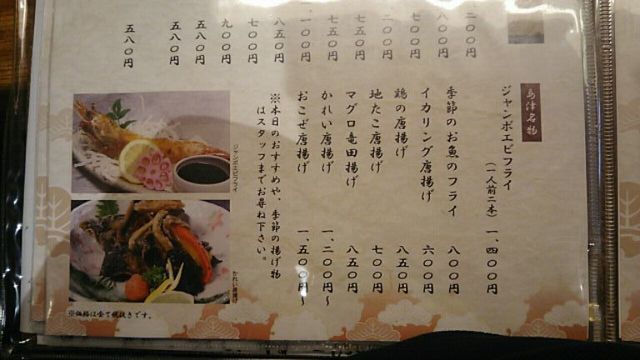 二〇〇円
八〇〇円
七〇〇円
二〇〇円
七五〇円
七五〇円
一、一〇〇円
八五〇円
七〇〇円
九〇〇円
五八〇円
五八〇円
五八〇円
島津名物
ジャンボエビフライ(一人前二本) 一、四〇〇円
季節のお魚のフライ 八〇〇円
イカリング唐揚げ 六〇〇円
鶏の唐揚げ 八五〇円
地たこ唐揚げ 七〇〇円
マグロ竜田揚げ 八五〇円
かれい唐揚げ 一、二〇〇円~
おこぜ唐揚げ 一、五〇〇円~
※本日のおすすめや、季節の揚げ物
はスタッフまでお尋ね下さい。
ジャンボエビフライ
かれい唐揚げ
※価格は全て税抜きです。